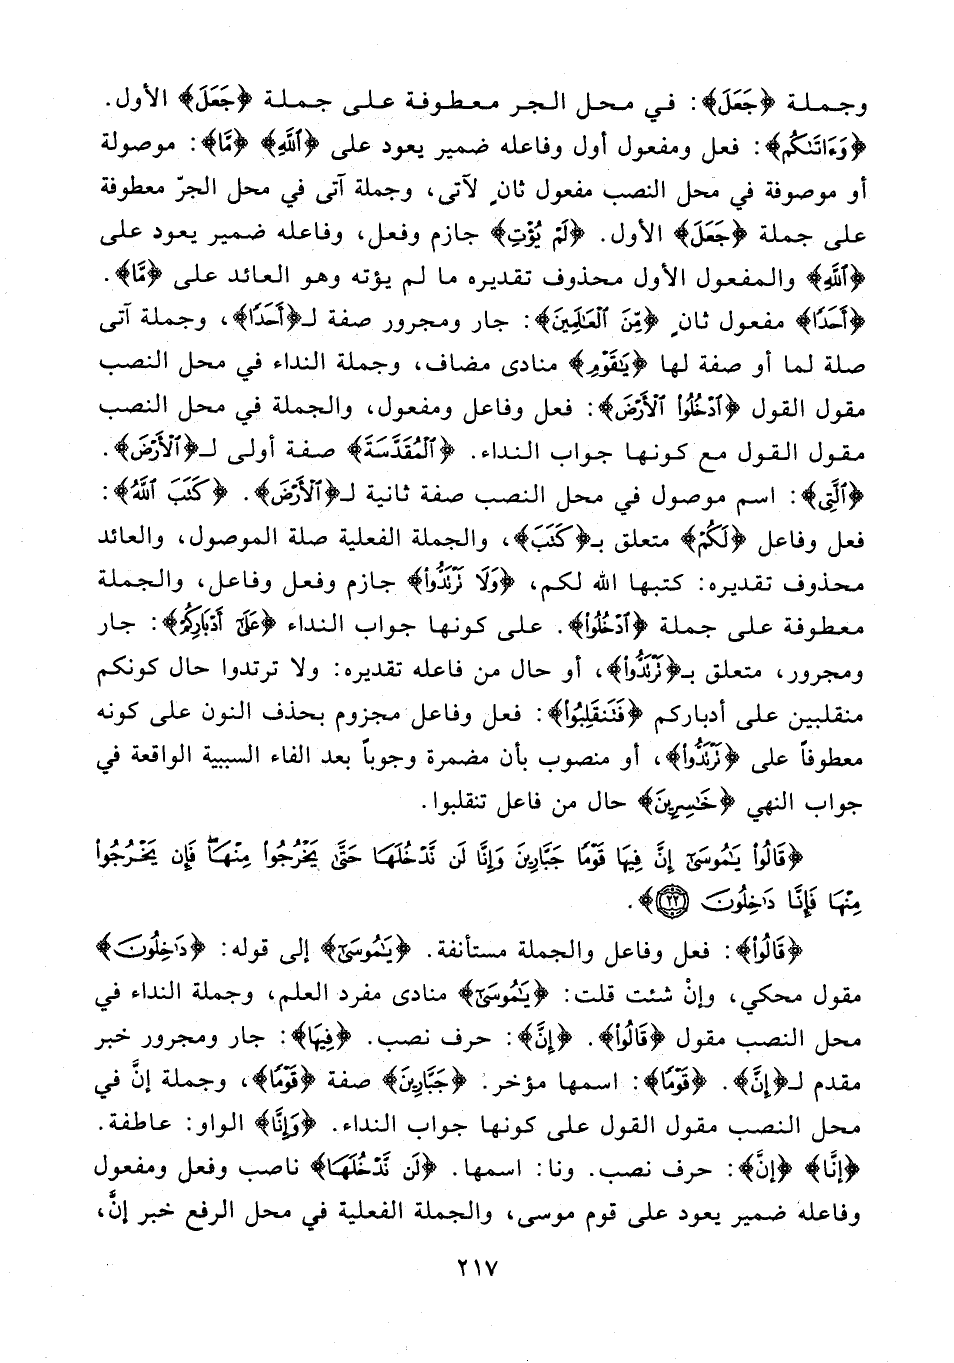 وجملة ﴿جَعَلَ﴾: في محل الجر معطوفة على جملة ﴿جَعَلَ﴾ الأول.
﴿وَءَاتَىٰكُم﴾: فعل ومفعول أول وفاعله ضمير يعود على ﴿ٱللَّهِ﴾ ﴿مَّا﴾: موصولة
أو موصوفة في محل النصب مفعول ثانٍ لآتى، وجملة آتى في محل الجرّ معطوفة
على جملة ﴿جَعَلَ﴾ الأول. ﴿لَمْ يُؤْتِ﴾ جازم وفعل، وفاعله ضمير يعود على
﴿ٱللَّهِ﴾ والمفعول الأول محذوف تقديره ما لم يؤته وهو العائد على ﴿مَّا﴾.
﴿أَحَدًا﴾ مفعول ثانٍ ﴿مِّنَ ٱلْعَٰلَمِينَ﴾: جار ومجرور صفة لـ﴿أَحَدًا﴾، وجملة آتى
صلة لما أو صفة لها ﴿يَٰقَوْمِ﴾ منادى مضاف، وجملة النداء في محل النصب
مقول القول ﴿ٱدْخُلُوا۟ ٱلْأَرْضَ﴾: فعل وفاعل ومفعول، والجملة في محل النصب
مقول القول مع كونها جواب النداء. ﴿ٱلْمُقَدَّسَةَ﴾ صفة أولى لـ﴿ٱلْأَرْضَ﴾.
﴿ٱلَّتِى﴾: اسم موصول في محل النصب صفة ثانية لـ﴿ٱلْأَرْضَ﴾. ﴿كَتَبَ ٱللَّهُ﴾:
فعل وفاعل ﴿لَكُمْ﴾ متعلق بـ﴿كَتَبَ﴾، والجملة الفعلية صلة الموصول، والعائد
محذوف تقديره: كتبها الله لكم، ﴿وَلَا تَرْتَدُّوا۟﴾ جازم وفعل وفاعل، والجملة
معطوفة على جملة ﴿ٱدْخُلُوا۟﴾. على كونها جواب النداء ﴿عَلَىٰٓ أَدْبَارِكُمْ﴾: جار
ومجرور، متعلق بـ﴿تَرْتَدُّوا۟﴾، أو حال من فاعله تقديره: ولا ترتدوا حال كونكم
منقلبين على أدباركم ﴿فَتَنقَلِبُوا۟﴾: فعل وفاعل مجزوم بحذف النون على كونه
معطوفاً على ﴿تَرْتَدُّوا۟﴾، أو منصوب بأن مضمرة وجوباً بعد الفاء السببية الواقعة في
جواب النهي ﴿خَٰسِرِينَ﴾ حال من فاعل تنقلبوا.
﴿قَالُوا۟ يَٰمُوسَىٰٓ إِنَّ فِيهَا قَوْمًا جَبَّارِينَ وَإِنَّا لَن نَّدْخُلَهَا حَتَّىٰ يَخْرُجُوا۟ مِنْهَا ۖ فَإِن يَخْرُجُوا۟
مِنْهَا فَإِنَّا دَٰخِلُونَ ٢٢﴾.
﴿قَالُوا۟﴾: فعل وفاعل والجملة مستأنفة. ﴿يَٰمُوسَىٰٓ﴾ إلى قوله: ﴿دَٰخِلُونَ﴾
مقول محكي، وإنْ شئت قلت: ﴿يَٰمُوسَىٰٓ﴾ منادى مفرد العلم، وجملة النداء في
محل النصب مقول ﴿قَالُوا۟﴾. ﴿إِنَّ﴾: حرف نصب. ﴿فِيهَا﴾: جار ومجرور خبر
مقدم لـ﴿إِنَّ﴾. ﴿قَوْمًا﴾: اسمها مؤخر. ﴿جَبَّارِينَ﴾ صفة ﴿قَوْمًا﴾، وجملة إنَّ في
محل النصب مقول القول على كونها جواب النداء. ﴿وَإِنَّا﴾ الواو: عاطفة.
﴿إِنَّا﴾ ﴿إِنَّ﴾: حرف نصب. ونا: اسمها. ﴿لَن نَّدْخُلَهَا﴾ ناصب وفعل ومفعول
وفاعله ضمير يعود على قوم موسى، والجملة الفعلية في محل الرفع خبر إنَّ،
٢١٧